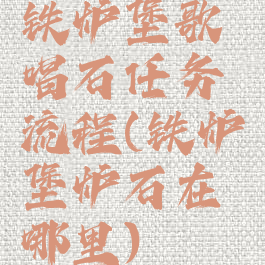 铁炉堡歌
唱石任务
流程(铁炉
堡炉石在
哪里)